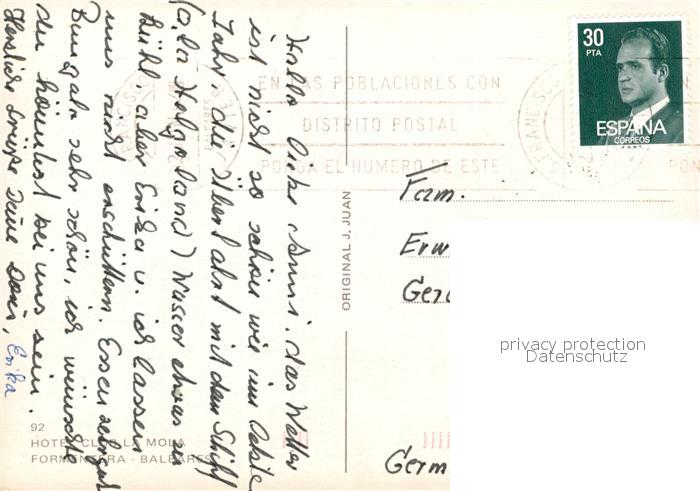 Hallo liebe Anni. das Wetter
ist nicht so schön wie im letzten
Jahr. die Überfahrt mit dem Schiff
(a, la Helgoland) Wasser etwas zu
kühl. aber Erika u. ich lassen
uns nicht erschüttern. Essen sehr gut
Bungalo sehr schön, ich wünschte
du könntest bei uns sein.
Herzliche Grüße Deine Doris, Erika
92
HOTEL CLUB LA MOLA
FORMENTERA - BALEARES
ORIGINAL J. JUAN
30
PTA
ESPAÑA
CORREOS
EN LAS POBLACIONES CON
DISTRITO POSTAL
PONGA EL NUMERO DE ESTE
PON
Fam.
Erw
Ger
privacy protection
Datenschutz
Germ